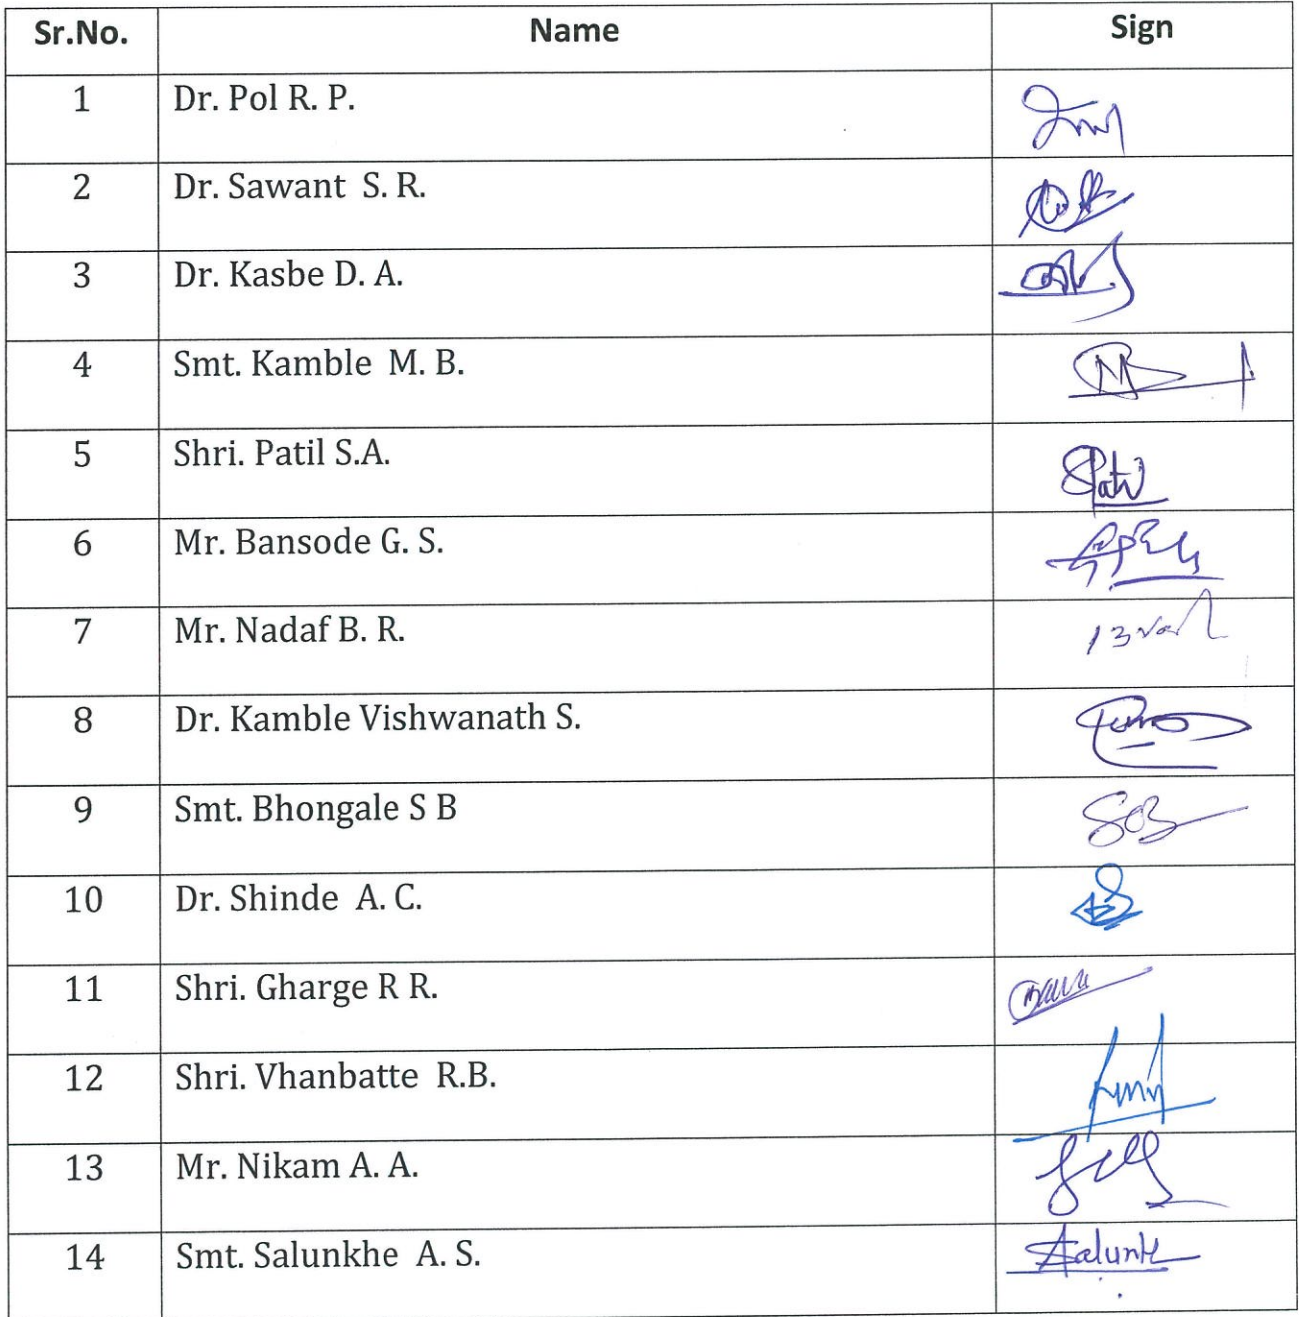 Sr.No. Name Sign
1 Dr. Pol R. P.
2 Dr. Sawant S. R.
3 Dr. Kasbe D. A.
4 Smt. Kamble M. B.
5 Shri. Patil S.A.
6 Mr. Bansode G. S.
7 Mr. Nadaf B. R.
8 Dr. Kamble Vishwanath S.
9 Smt. Bhongale S B
10 Dr. Shinde A. C.
11 Shri. Gharge R R.
12 Shri. Vhanbatte R.B.
13 Mr. Nikam A. A.
14 Smt. Salunkhe A. S.